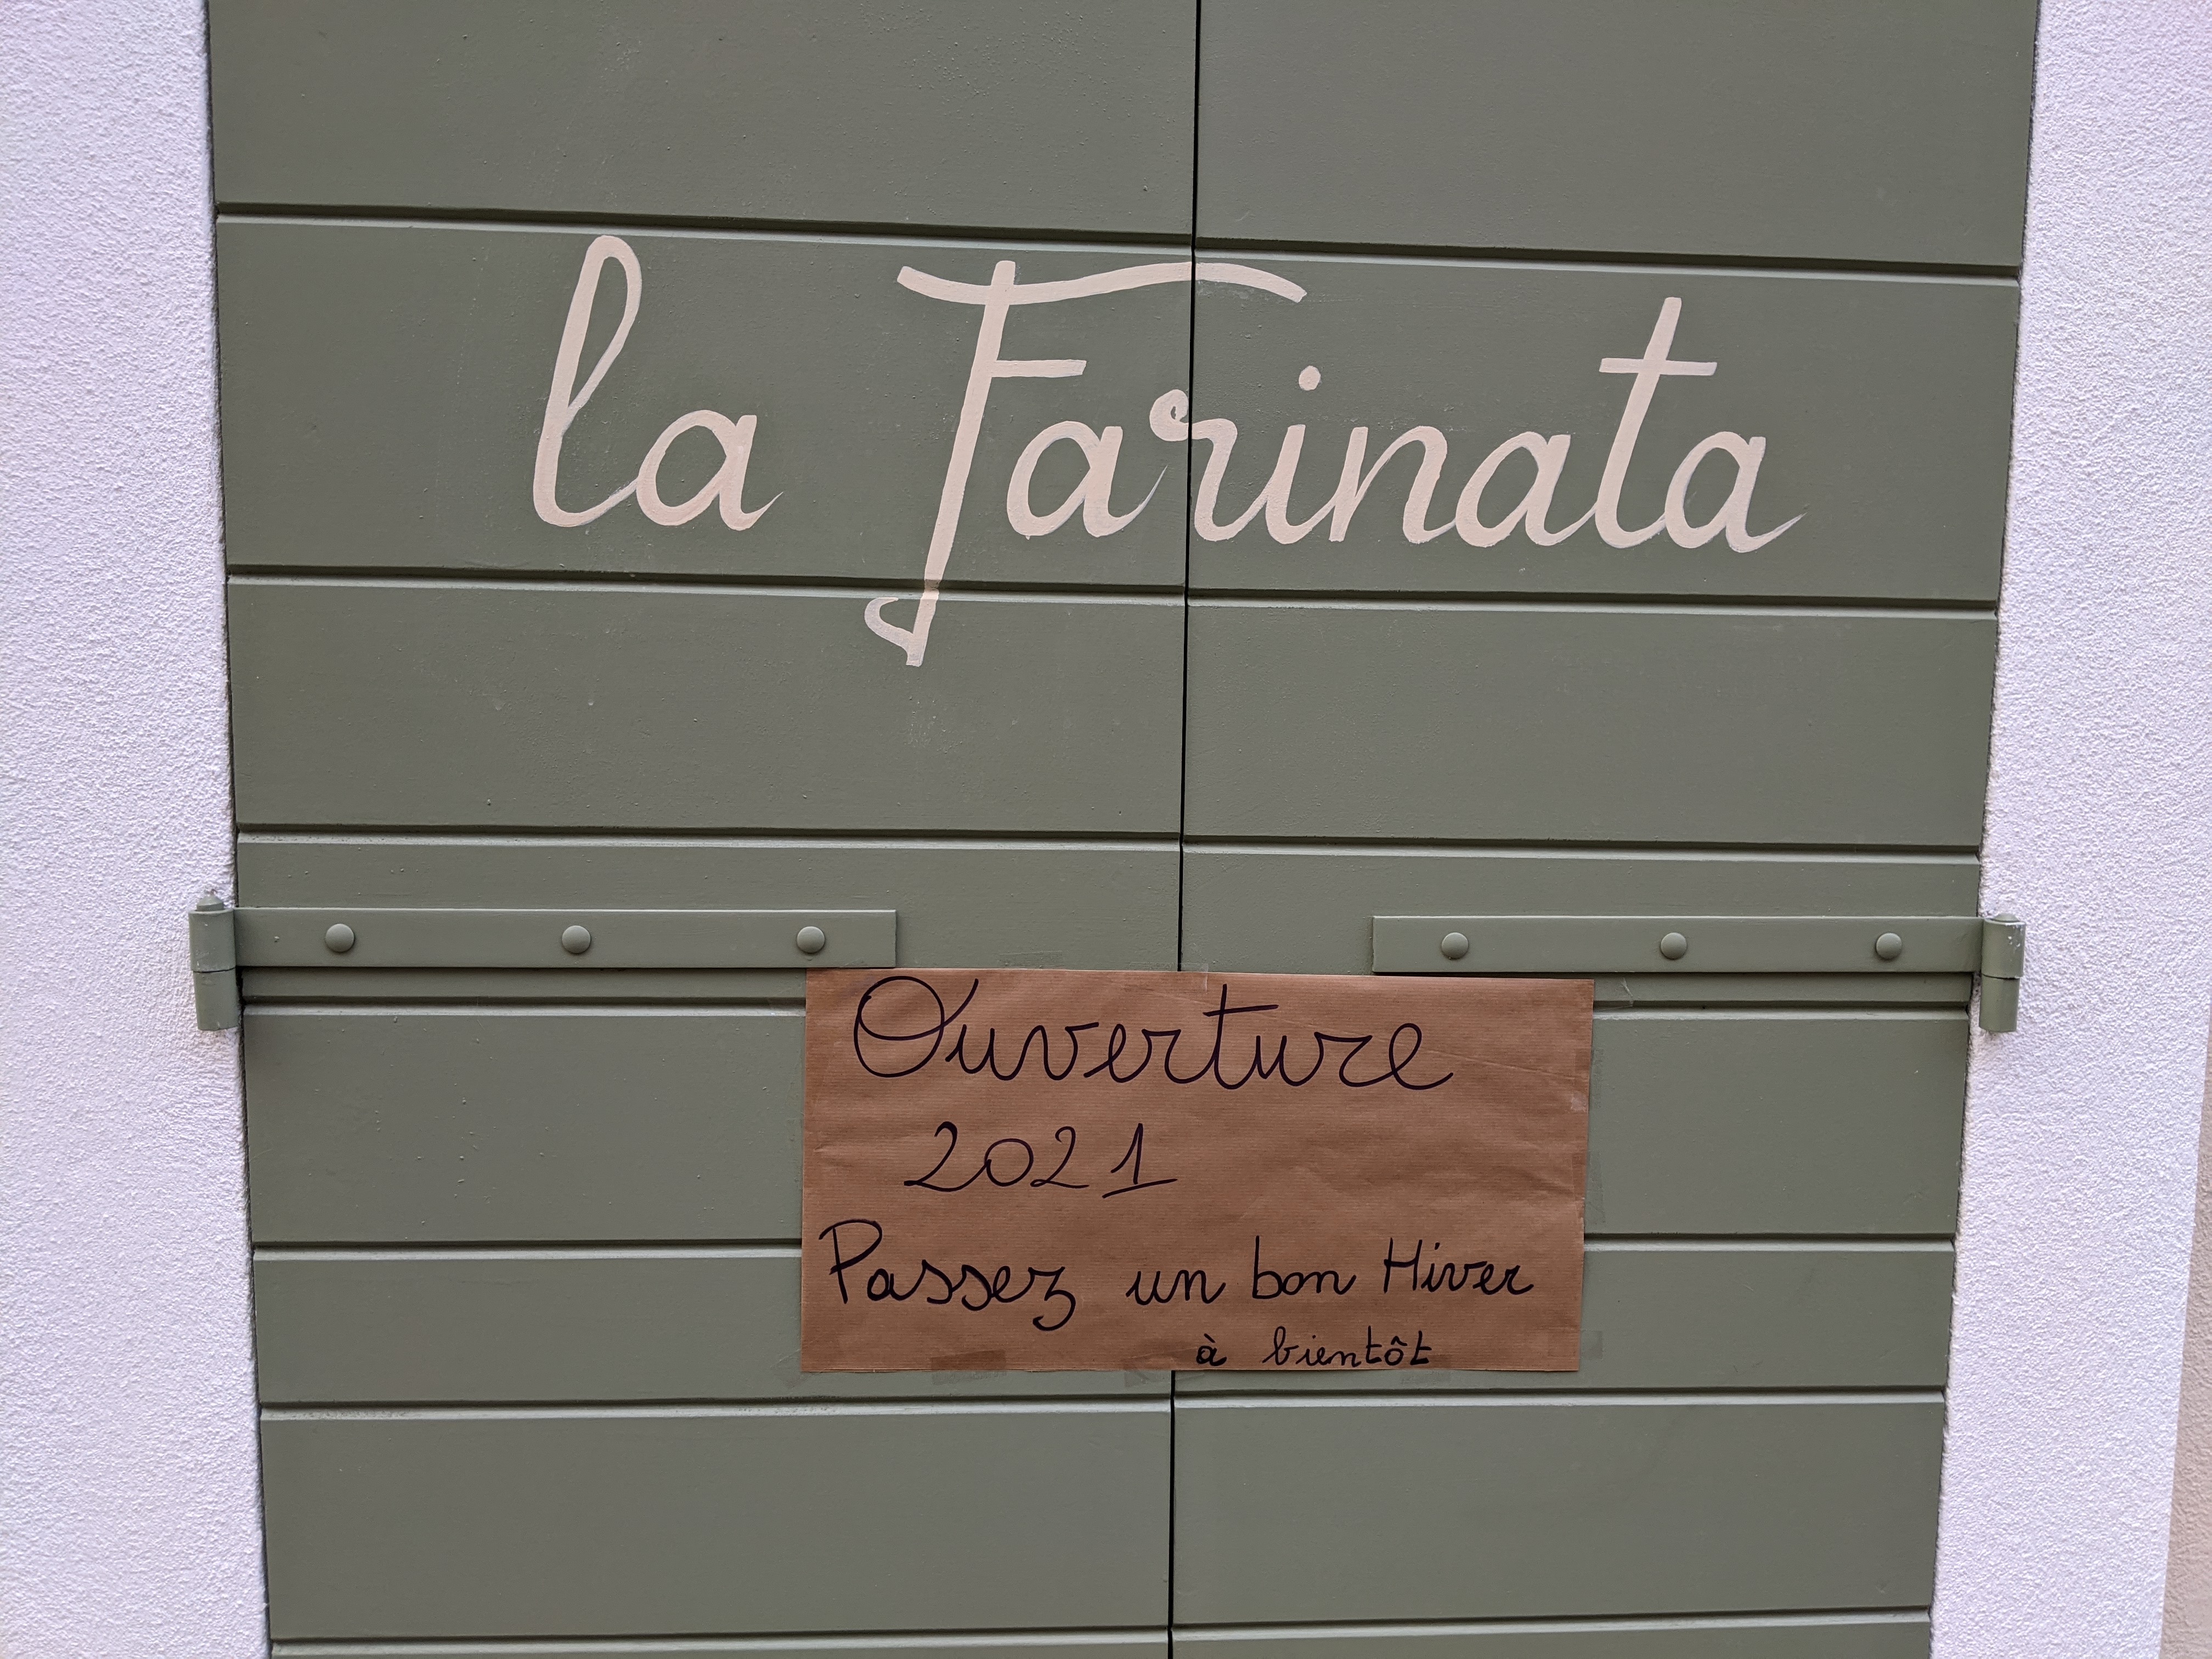 la Farinata
Ouverture
2021
Passez un bon Hiver
à bientôt